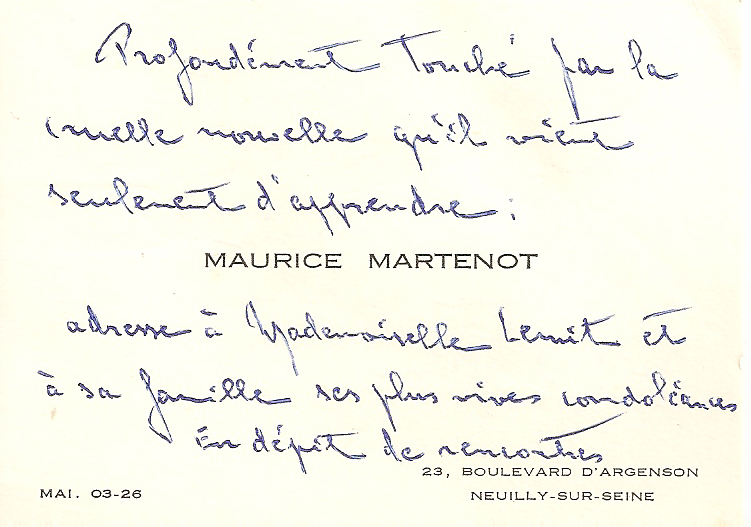 Profondément Touché par la
cruelle nouvelle qu'il vient
seulement d'apprendre ;
MAURICE MARTENOT
adresse à Mademoiselle et
à sa famille ses plus vives condoléances
En dépit de rencontres
23, BOULEVARD D'ARGENSON
MAI. 03-26
NEUILLY-SUR-SEINE